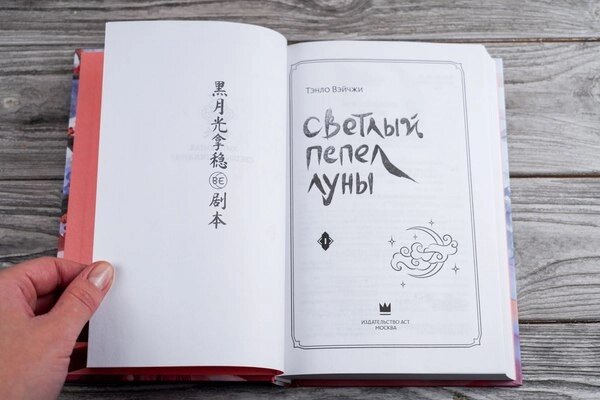 黑月光拿稳BE剧本
Тэнло Вэйчжи
Светлый
пепел
луны
1
ИЗДАТЕЛЬСТВО АСТ
МОСКВА